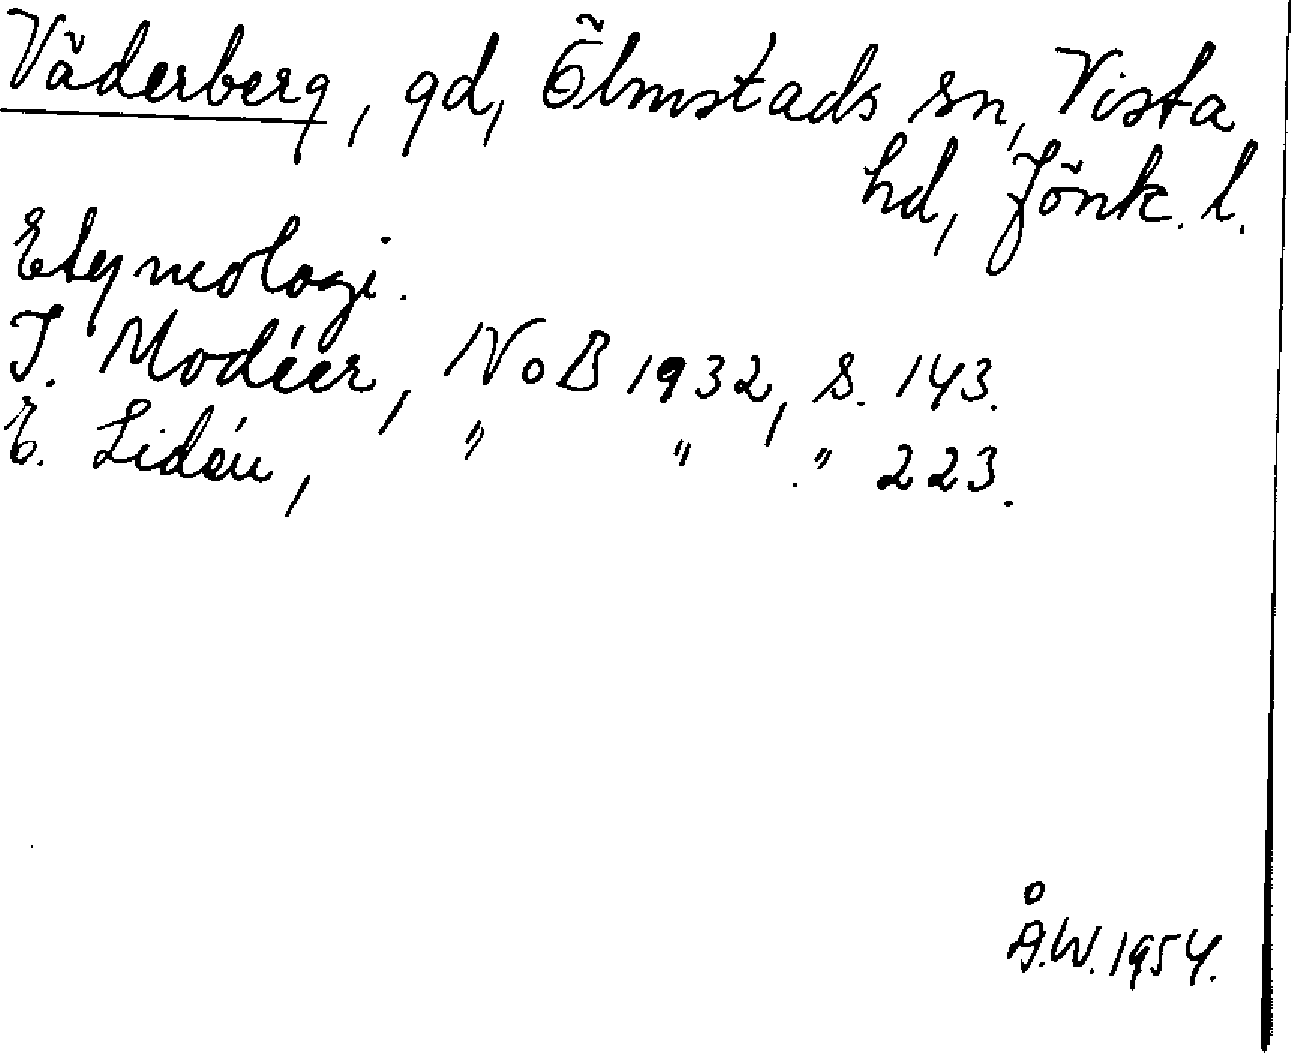 Väderberg, gd, Ölmstads sn, Vista
hd, Jönk. l.
Etymologi.
I. Modéer, NoB 1932, s. 143.
E. Lidén, " " . " 223.
Å.W. 1954.